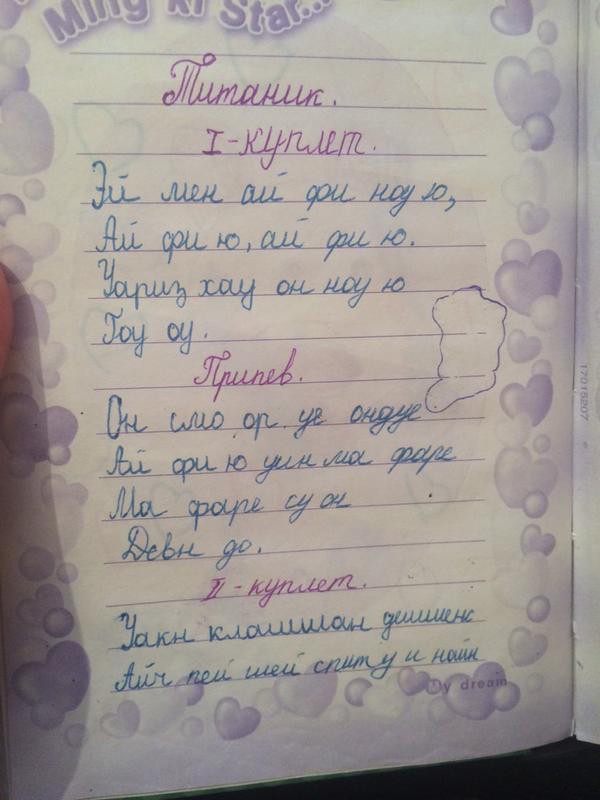 Ming ki Star...
Титаник.
I-куплет.
Эй мен ай фи ноу ю,
Ай фи ю, ай фи ю.
Уариз хау он ноу ю
Гоу оу.
Припев.
Он смо ор уе ондуе
Ай фи ю уин ма фаре
Ма фаре су он
Девн до.
II-куплет.
Уакн клашиан дешиенс
Айч пей шей спиту и найн
My dream
17016207